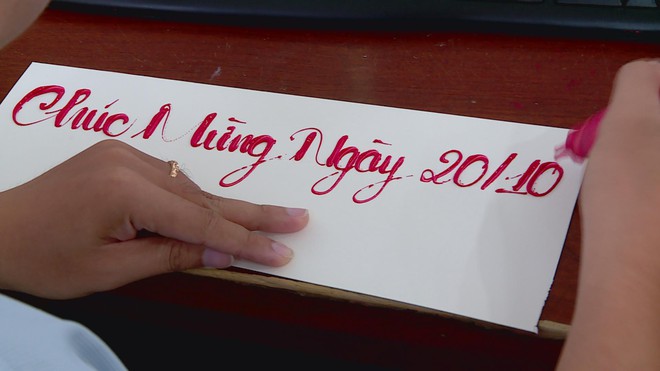 Chúc Mừng Ngày 20/10